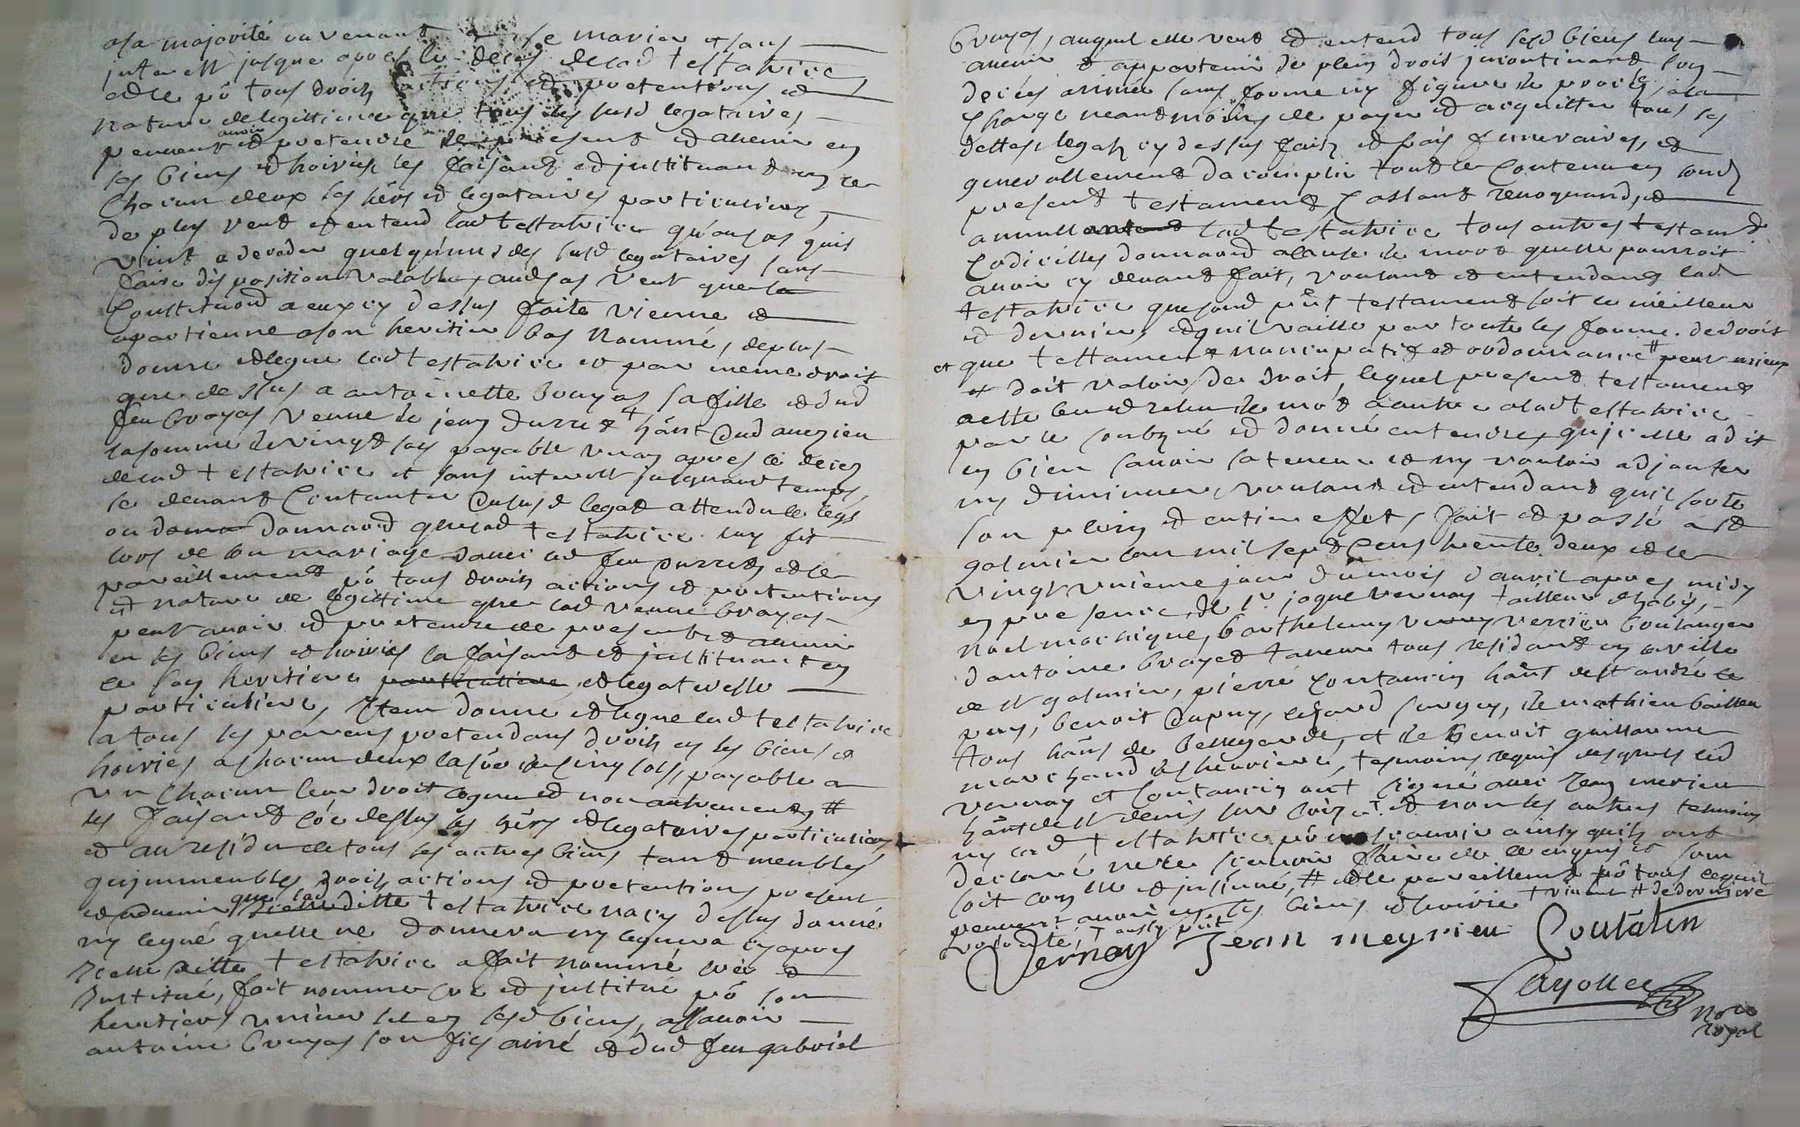 asa majorité ou venant a se marier et sans
interest jusque apres le deces de lad testatrice
et ce po tous droits actions et pretentions et
nature de legittime que tous les susd legataires
peuvent avoir et pretendre de present et advenir en
ses biens et hoiries les faisant et instituant en ce
chacun deux ses hers et legataires particuliers,
de plus veut et entend lad testatrice qu'au cas quis
vint a deceder quelqu'uns des susd legataires sans
faire disposition valable, aud cas veut que la
constitu͠on a eux cy dessus faite vienne et
apartienne a son heritier bas nommé, de plus
donne et legue lad testatrice et par meme droit
que dessus a antoinette bruyas sa fille et dud
feu bruyas veuve de jean durret hãnt dud
la somme de vingt sols payable un an apres le deces
de lad testatrice et sans interest jusquaud temps,
se devant contanter dususd legat attendu le legs
ou donna͠on que lad testatrice luy fit
lors de son mariage avec led feu durret et ce
pareillement po tous droits actions et pretentions
et nature de legittime que lad veuve bruyas
peut avoir et pretendre de present et advenir
en ses biens et hoiries la faisant et instituant en
ce son heritiere et legateresse
particuliere, Item donne et legue lad testatrice
a tous ses parens pretendans droits en ses biens et
hoiries a chacun deux la so͠e de cinq sols, payable a
un chacun leur droit cognu et non autrement #
les faisant co͠e dessus ses hers et legataires particuliers
et au residu de tous ses autres biens tant meubles
qu'immeubles droits actions et pretentions present
et advenir que lad testatrice na cy dessus donné
ny legué quelle ne donnera ny leguera cy apres
Icelle ditte testatrice a fait nommé creé et
Institué, fait nomme cré et institué po son
heritier universel en sesd biens, assavoir
antoine bruyas son fils ainé et dud feu gabriel
bruyas, auquel elle veut et entend tous sesd biens luy
avenir et appartenir de plein droit incontinant son
deces arrivé sans forme ny figure de procès, a la
charge neantmoins de payer et acquitter tous ses
dettes, legats cy dessus faits et frais funeraires, et
generallement dacomplir tout le contenu en sond
present testament, cassant revoquant, et
annullant lad testatrice tous autres testam͠t
codicilles dona͠on a cause de mort quelle pourroit
avoir cy devant fait, voulant et entendant lad
testatrice que sond pn͠t testament soit le meilleur
et dernier, et quil vaille par toute les forme de droit
et que testament nuncupatif et ordonnance # peut mieux
et doit valoir de droit, lequel present testament
a esté leu et releu de mot a autre a lad testatrice
par le soubzné et donné entendre, qu'icelle a dit
en bien savoir sa teneur et ny vouloir adjouter
ny diminuer, voulant et entendant quil sorte
son plein et entier effet, fait et passé a st
galmier lan mil sept cens trente deux et le
vingt unieme jour du mois d'avril apres midy
en presence de sr. jaque vernay tailleur dhabis,
noel marsigue, barthelemy verrier boulanger
d'antoine bruyet tanneur tous residant en laville
de st galmier, pierre contancin hãnt de st andré le
puy, benoit dupuy, les tous hãns de bellegarde, et sr benoit guillaume
marchand de chevriere, tesmoins requis desquels led
vernay et contancin ont signé avec jean meyrieu
hãnt de st denis sur coize. et non les autres temoins
ny lad testatrice po ne scavoir ainsy quils ont
declaré ne le scavoir faire de ce enquis et som
soit con͠llé et insinué, # et ce pareillement po tous ce quils
peuvent avoir en ses biens et hoirie # de derniere
volonté,
Vernay Jean meyrieu Coutãtin
Cayollier
No͠re
royal